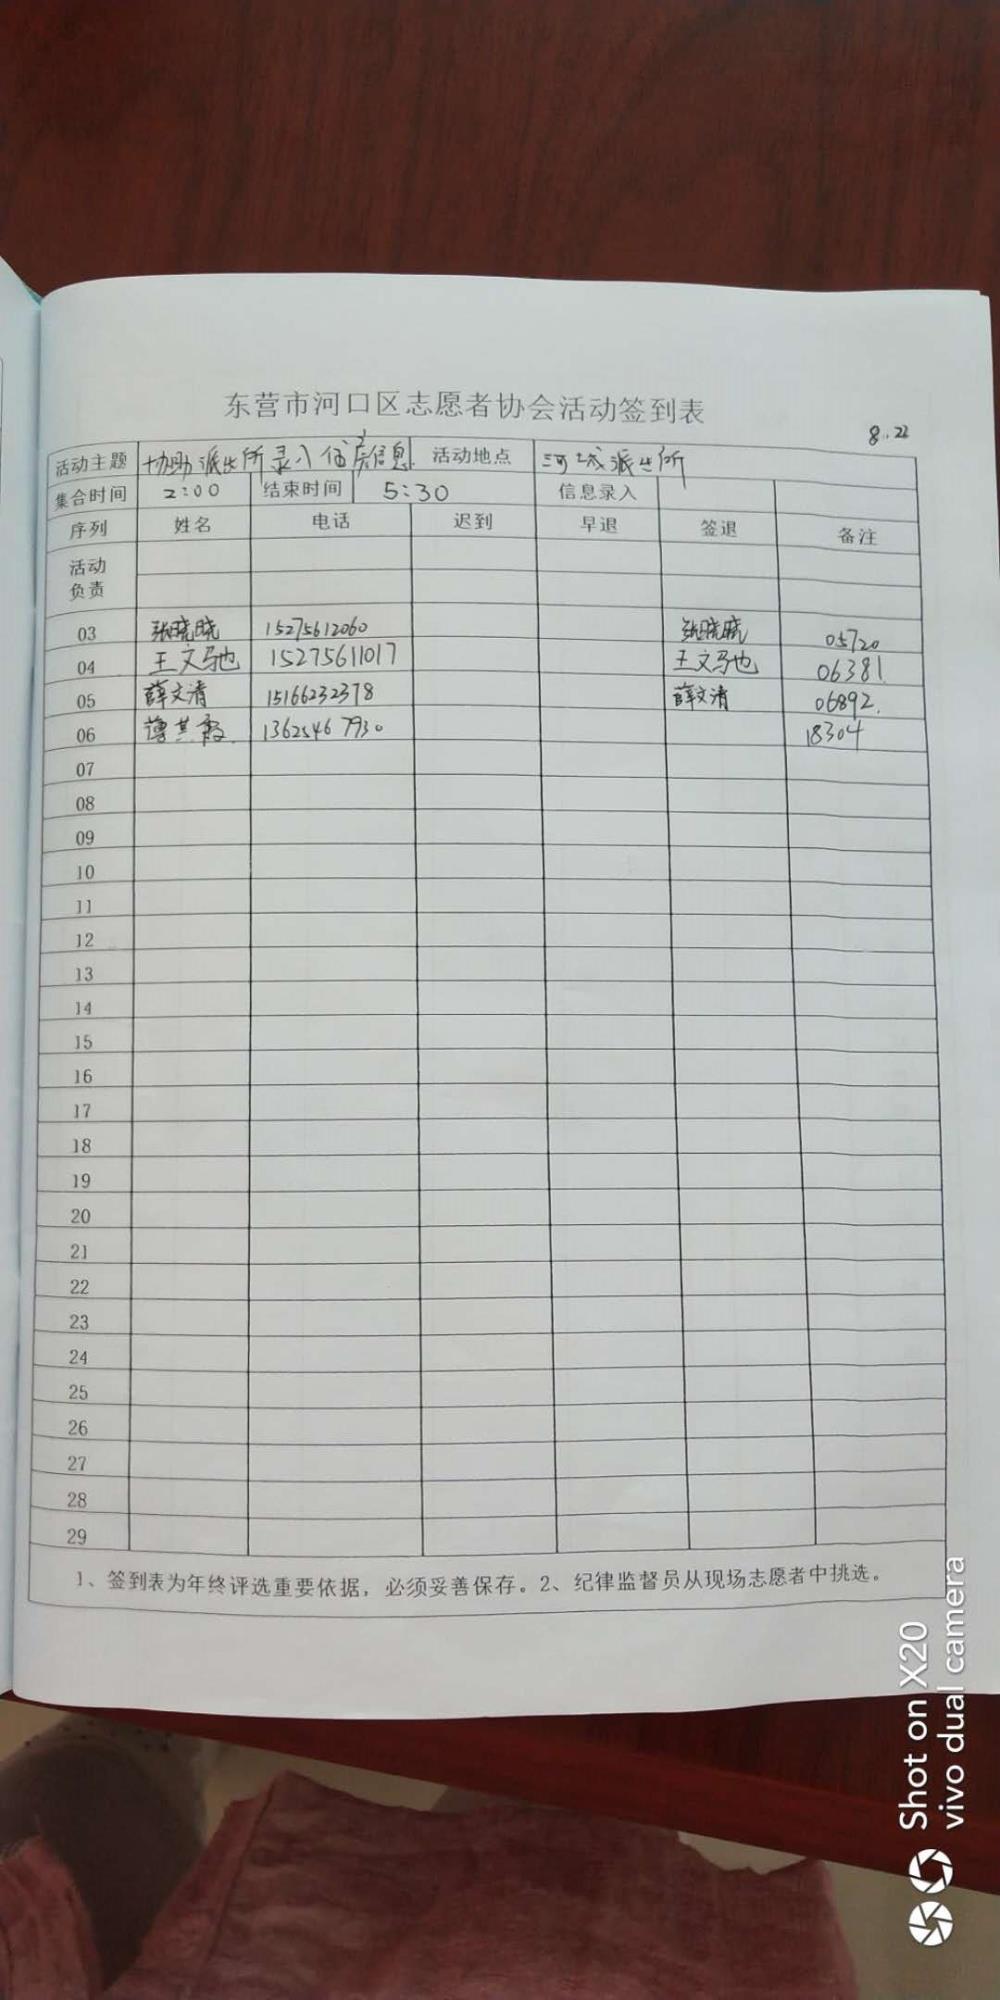 东营市河口区志愿者协会活动签到表
8.22
活动主题 协助派出所录入住房信息 活动地点 河城派出所
集合时间 2:00 结束时间 5:30 信息录入
序列 姓名 电话 迟到 早退 签退 备注
活动
负责
03 张晓晓 15275612060 张晓晓 05720
04 王文驰 15275611017 王文驰 06381
05 薛文清 15166232378 薛文清 06892
06 其霞 13625467930 18304
07
08
09
10
11
12
13
14
15
16
17
18
19
20
21
22
23
24
25
26
27
28
29
1、签到表为年终评选重要依据，必须妥善保存。2、纪律监督员从现场志愿者中挑选。
Shot on X20
vivo dual camera